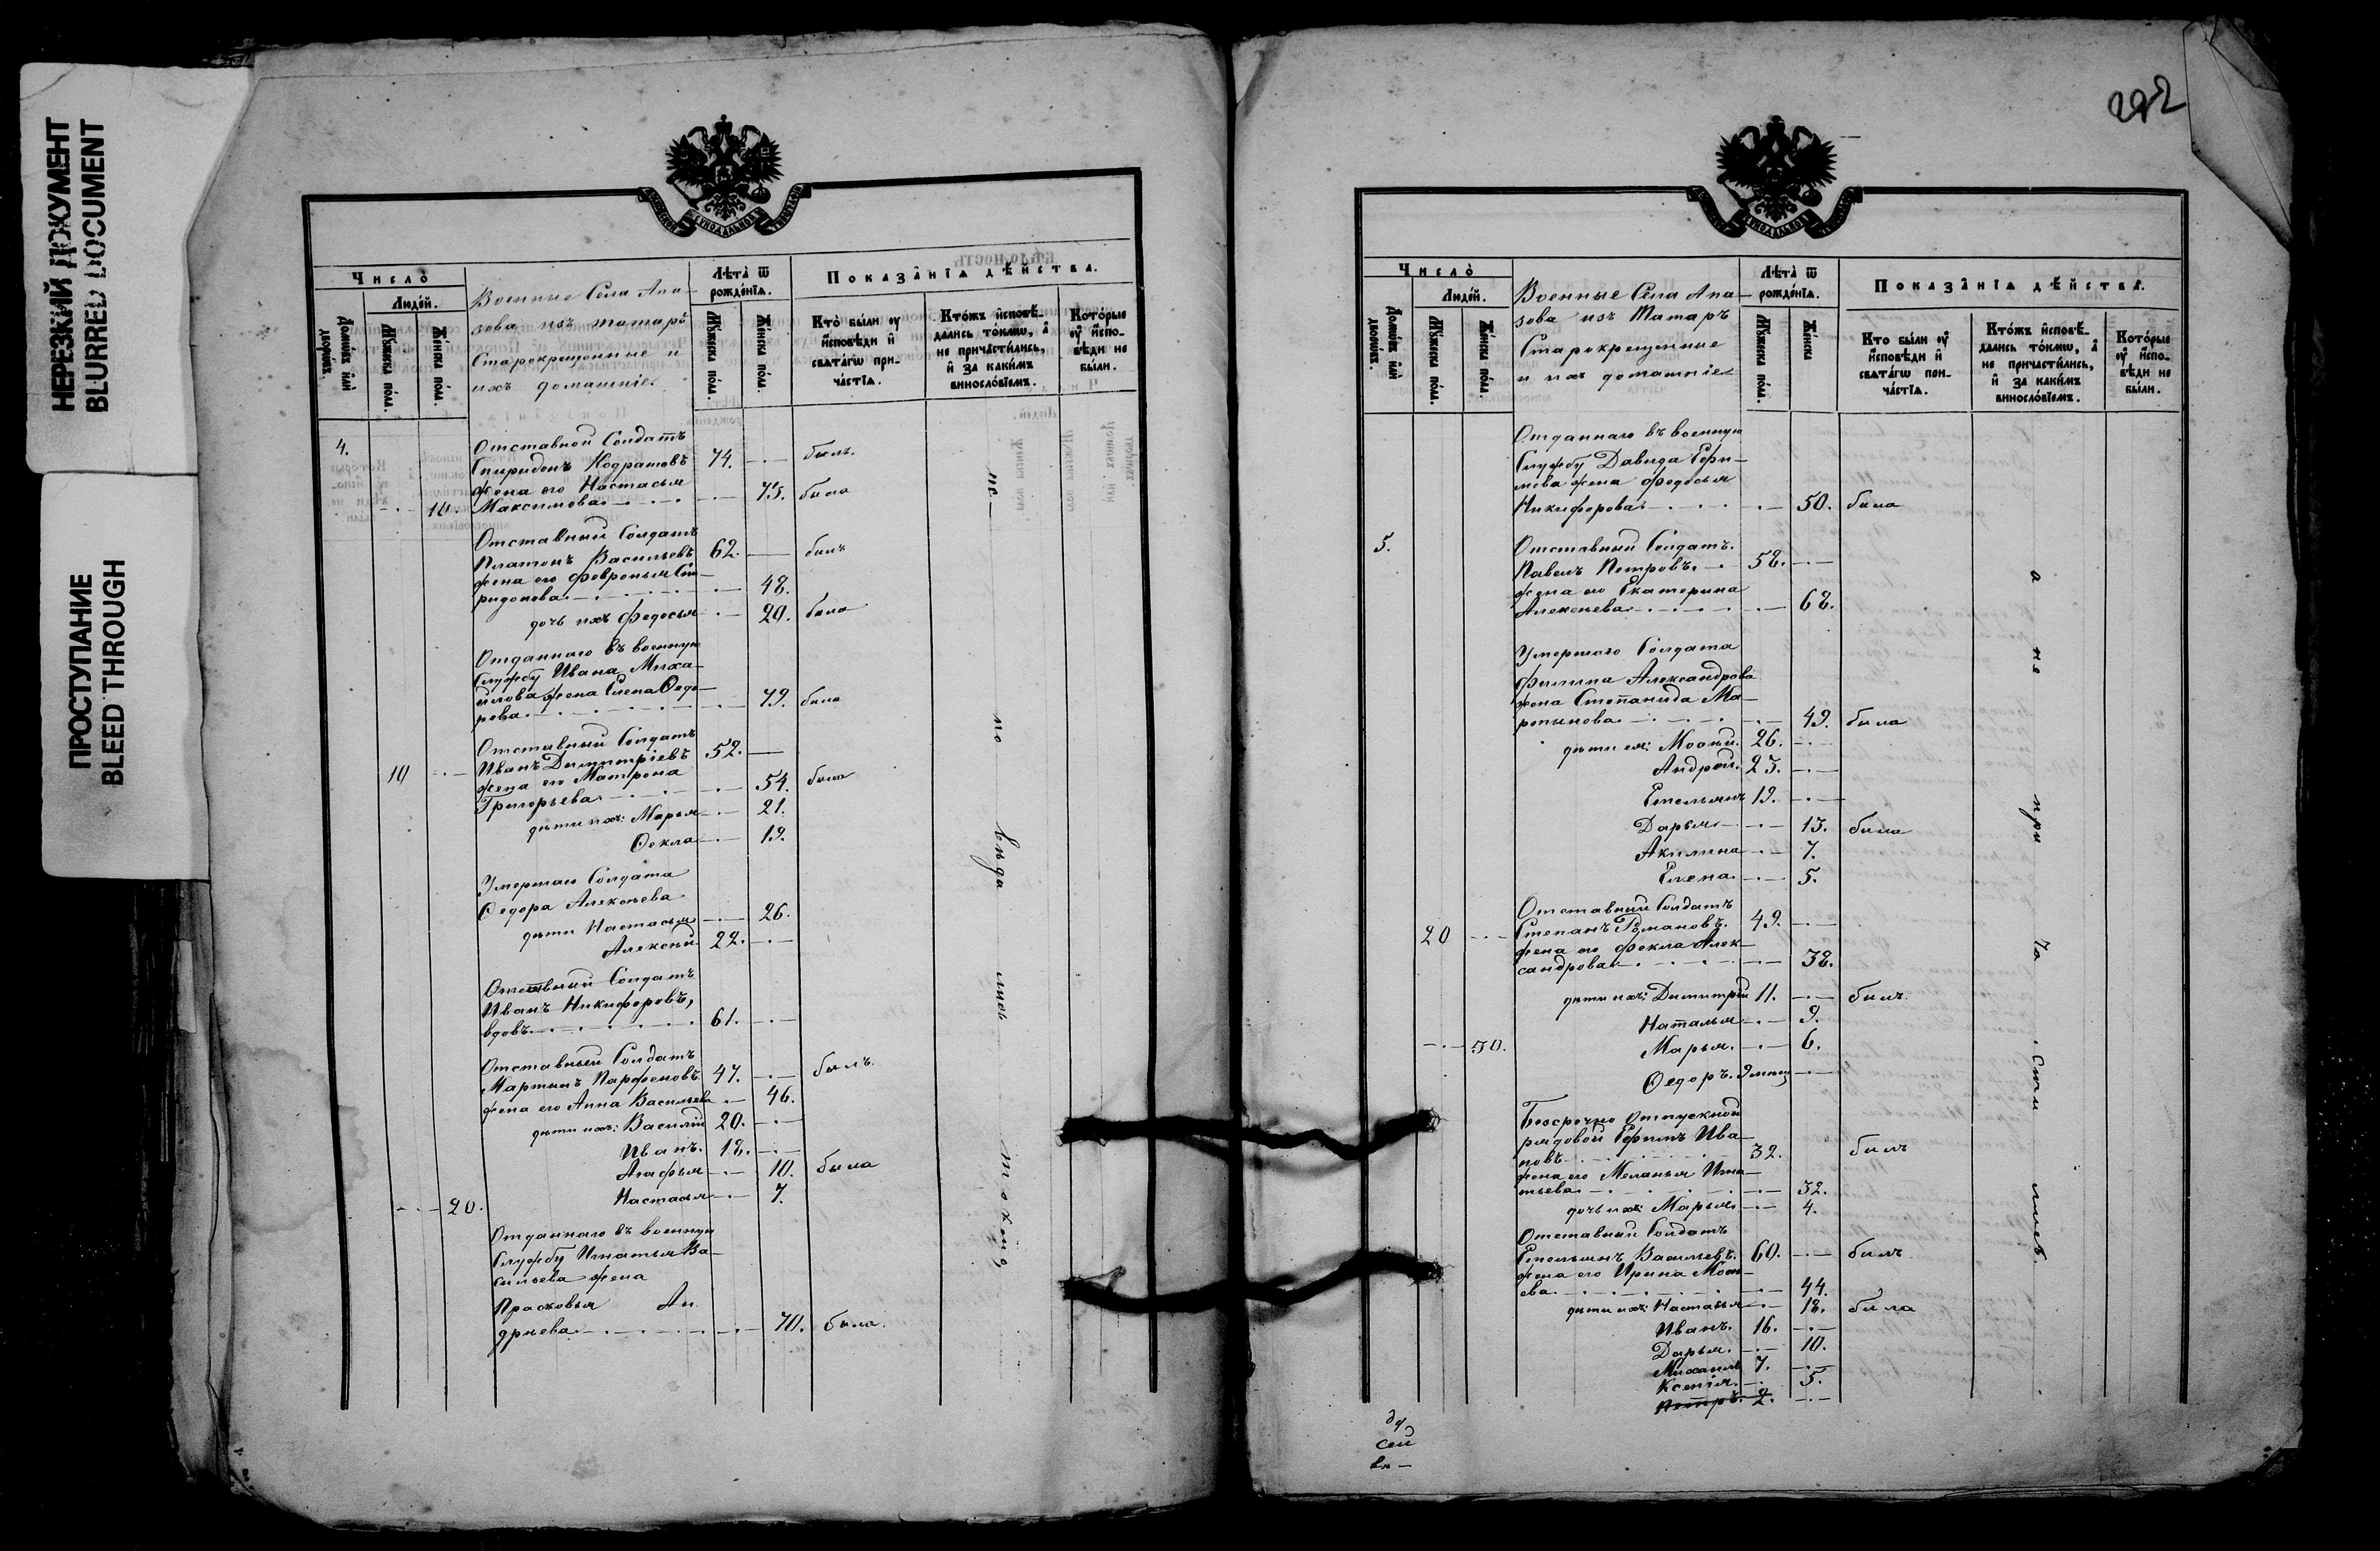 НЕРЕЗКИЙ ДОКУМЕНТ
BLURRED DOCUMENT
ПРОСТУПАНИЕ
BLEED THROUGH
Число̀
Людéй.
Домѡ́въ илѝ дворѡ́въ.
Мꙋ́жеска по́ла.
Же́нска по́ла.
Военные Села Апа-
зова изъ татаръ
Старокрещенные и
ихъ домашніе.
Лѣта̀ ѿ
рожде́нїѧ.
Мꙋ́жеска по́ла.
Же́нска по́ла.
Показа̂нїѧ дѣ́йства.
Кто̀ бы́ли ᲂу҆
и҆сповѣ́ди и҆
свѧта́гѡ при-
ча́стїѧ.
Кто́жъ и҆сповѣ́-
дались то́кмѡ, а҆
не причасти́лись,
и҆ за каки́мъ
винословїемъ.
Кото́рые
ᲂу҆ и҆спо-
вѣ́ди не
бы́ли.
4.
Отставной Солдатъ
Спиридонъ Кодратовъ 74. был.
жена его Настасья
10. Максимова 75. была
Отставный Солдатъ
Платонъ Васильевъ 62. былъ
жена его Февронья Спи-
ридонова 48.
дочь ихъ Федосья 20. была
Отданнаго въ военную
Службу Ивана Миха-
йлова жена Елена Ѳедо-
рова 79. была
Отставный Солдатъ
10 Иванъ Димитріевъ 52.
жена его Матрона
Григорьева 54. была
дѣти ихъ: Марья 21.
Ѳекла 19.
Умершаго Солдата
Ѳедора Алексѣева
дѣти Настасья 26.
Алексѣй 22.
Отставный Солдатъ
Иванъ Никифоровъ,
вдовъ 61.
Отставный Солдатъ
Мартынъ Парфеновъ 47. былъ.
жена его Анна Васильева 46.
дѣти ихъ: Василій 20.
Иванъ. 18.
Агафья 10. была
20. Настасья 7.
Отданнаго въ военную
Службу Игнатья Ва-
сильева жена
Прасковья Ан
дреева 70. была.
ис-
по
вѣда
лись
токмо,
292
Число̀
Людéй.
Домѡ́въ илѝ дворѡ́въ.
Мꙋ́жеска по́ла.
Же́нска по́ла.
Военные Села Апа-
зова изъ Татаръ
Старокрещенные
и ихъ домашніе
Лѣта̀ ѿ
рожде́нїѧ.
Мꙋ́жеска по́ла.
Же́нска
Показа̂нїѧ дѣ́йства.
Кто̀ бы́ли ᲂу҆
и҆сповѣ́ди и҆
свѧта́гѡ при-
ча́стїѧ.
Кто́жъ и҆сповѣ́-
дались то́кмѡ, а҆
не причасти́лись,
и҆ за каки́мъ
винословїемъ.
Кото́рые
ᲂу҆ и҆спо-
вѣ́ди не
бы́ли.
Отданнаго въ военную
Службу Давида Ефи-
мова жена Федосья
Никифорова 50. была
5. Отставный Солдатъ.
Павелъ Петровъ. 58.
жена его Екатерина
Алексѣева 68.
Умершаго Солдата
Филипа Александрова
жена Степанида Ма-
ртынова 49. была
дѣти ея: 26.
Андрей. 23.
Емельянъ 19.
Дарья 13. была
Акилина 7.
Елена. 5.
Отставный Солдатъ
20 Степанъ Романовъ. 49.
жена его Фекла Алек-
сандрова 38.
дѣти ихъ: Димитрій 11. былъ.
Наталья 9.
30. Марья. 6.
Ѳедоръ.
Безсрочно Отпускной
рядовой Ефимъ Ива-
новъ 32. былъ
жена его Меланья Игна-
тьева 32.
дочь ихъ: Марья 4.
Отставный Солдатъ
Емельянъ Васильевъ. 60. былъ
жена его Ирина
ева 44.
дѣти ихъ: Настасья 18. была
Иванъ. 16.
Дарья. 10.
Михаилъ 7.
Ксенія. 5.
Петръ. 2.
а
не
при
ча
сти
лись.
сей